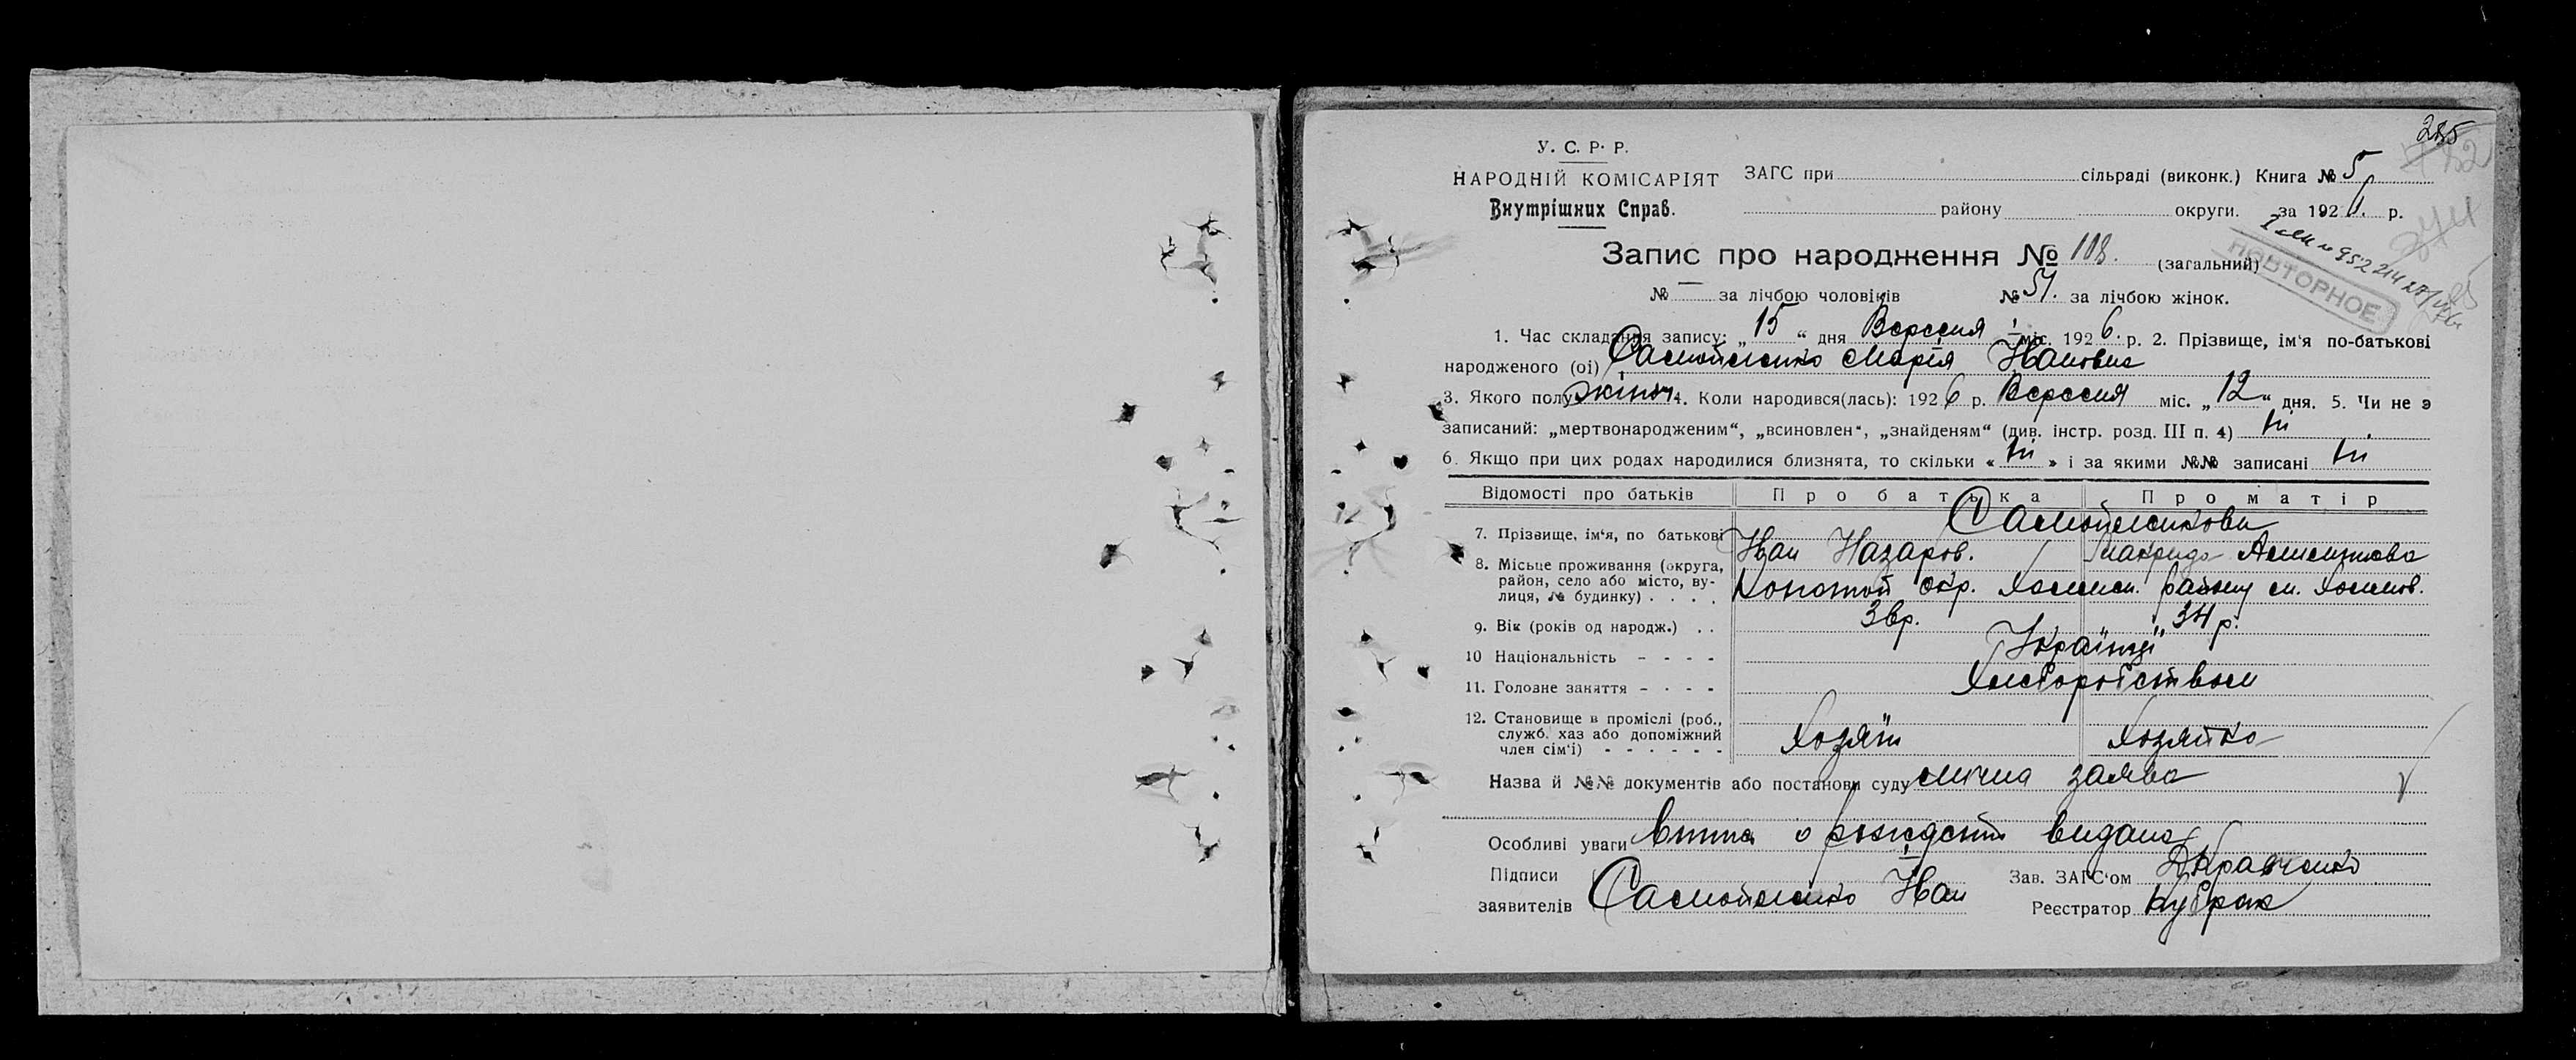 285
У. С. Р. Р.
НАРОДНІЙ КОМІСАРІЯТ
Внутрішних Справ.
ЗАГС при сільраді (виконк.) Книга № 5
району округи. за 192 р.
Запис про народження № 108. (загальний)
ПОВТОРНОЕ
№ — за лічбою чоловіків № 51. за лічбою жінок.
1. Час складання запису: „ 15 “ дня Вересня міс. 192 6. р. 2. Прізвище, ім‘я по-батькові
народженого (ої) Самойленко Марія Ивановна
3. Якого полу жіноч 4. Коли народився(лась): 192 6 р. Вересня міс. „ 12 “ дня. 5. Чи не э
записаний: „мертвонародженим“, „всиновлен“, „знайденям“ (див. інстр. розд. III п. 4) ні
6. Якщо при цих родах народилися близнята, то скільки « ні » і за якими №№ записані ні
Відомості про батьків Про батька Про матір
Самойленкови
7. Прізвище, ім‘я, по батькові Иван Назаров.
8. Місьце проживання (округа, район, село або місто, вулиця, № будинку) . . . . Конотоп окр. району
9. Вік (років од народж.) . . 34 р.
10 Національність - - - - Українці
11. Головне заняття - - - - Хліборобством
12. Становище в промислі (роб., служб. хаз або допоміжний член сім‘ї) - - - - - - Хозяїн Хозяйка
Назва й №№ документів або постанови суду заява
Особливі уваги видана
Підписи заявителів Самойленко Иван
Зав. ЗАГС‘ом Кравченко
Реєстратор Кубрак